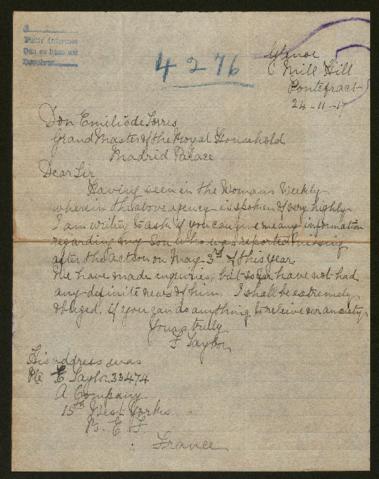 4276
Mill Hill
Pontefract
24-11-17
Don Emilio de Torres
Grand Master of the Royal Household
Madrid Palace
Dear Sir
Having seen in the Womans Weekly
wherein the above agency is spoken of very highly
I am writing to ask if you can give me any information
regarding my son who was reported missing
after the action on May 3rd of this year
We have made enquiries, but so far have not had
any definite news of him. I shall be extremely
obliged, if you can do anything to relieve our anxiety.
Yours truly
F Taylor
His address was
E Taylor 33474
A Company
15th West Yorks
B. E. F.
France